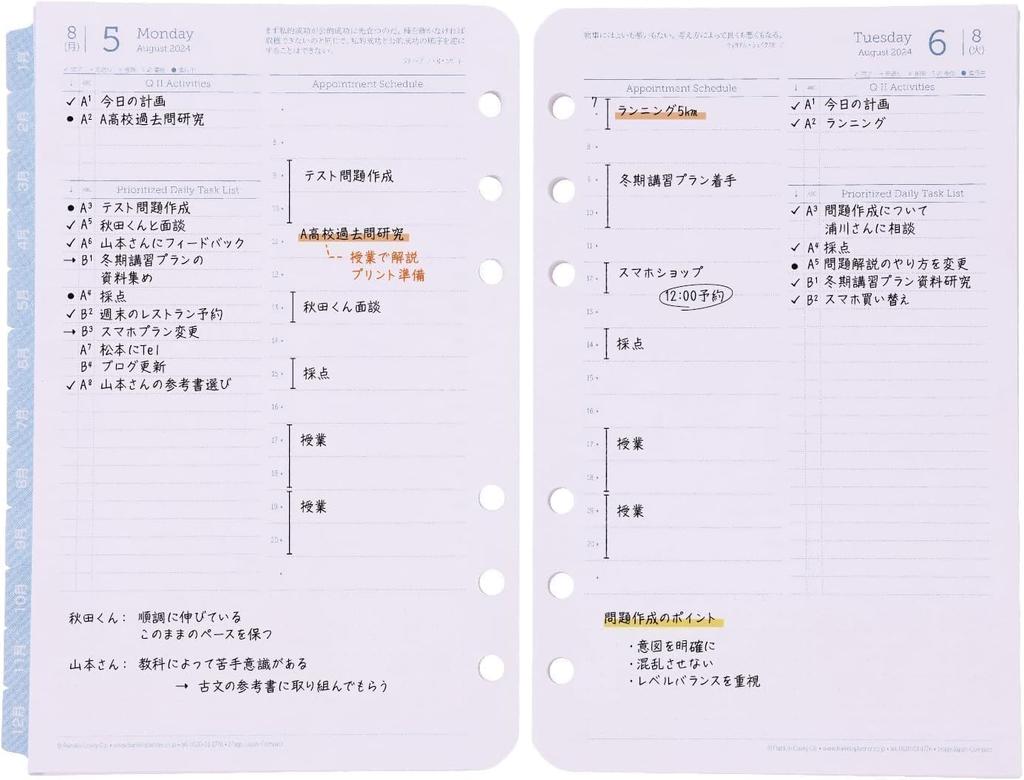 8
(月)
5
Monday
August 2024
Q II Activities
✓ A¹ 今日の計画
● A² A高校過去問研究
↓ ABC Prioritized Daily Task List
● A³ テスト問題作成
✓ A⁵ 秋田くんと面談
✓ A⁶ 山本さんにフィードバック
→ B¹ 冬期講習プランの
資料集め
● A⁴ 採点
✓ B² 週末のレストラン予約
→ B³ スマホプラン変更
A⁷ 松本にTel
B⁴ ブログ更新
✓ A⁸ 山本さんの参考書選び
Appointment Schedule
8
9
テスト問題作成
10
11
A高校過去問研究
授業で解説
12
プリント準備
13
秋田くん面談
14
15
採点
16
17
授業
18
19
授業
20
秋田くん： 順調に伸びている
このままのペースを保つ
山本さん： 教科によって苦手意識がある
→ 古文の参考書に取り組んでもらう
1月
2月
3月
4月
5月
6月
7月
8月
9月
10月
11月
12月
Tuesday
August 2024
6
8
(火)
Appointment Schedule
7
ランニング5km
8
9
冬期講習プラン着手
10
11
12
スマホショップ
12:00予約
13
14
採点
15
16
17
授業
18
19
授業
20
Q II Activities
✓ A¹ 今日の計画
✓ A² ランニング
↓ ABC Prioritized Daily Task List
✓ A³ 問題作成について
浦川さんに相談
✓ A⁴ 採点
● A⁵ 問題解説のやり方を変更
✓ B¹ 冬期講習プラン資料研究
✓ B² スマホ買い替え
問題作成のポイント
・意図を明確に
・混乱させない
・レベルバランスを重視